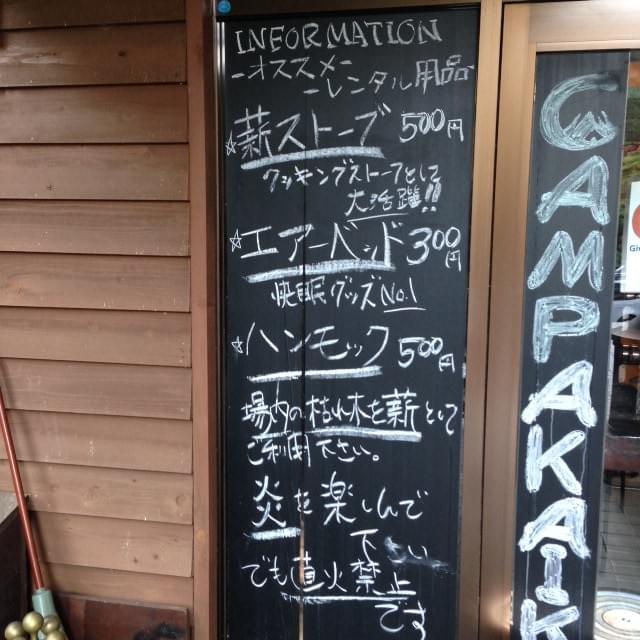 INFORMATION
ーオススメー
ーレンタル用品
☆薪ストーブ 500円
クッキングストーブとして
大活躍!!
☆エアーベッド 300円
快眠グッズ No.1
☆ハンモック 500円
場内の枯れ木を薪として
ご利用下さい。
炎を楽しんで
下さい
でも直火禁止
です
CAMPAKAIK